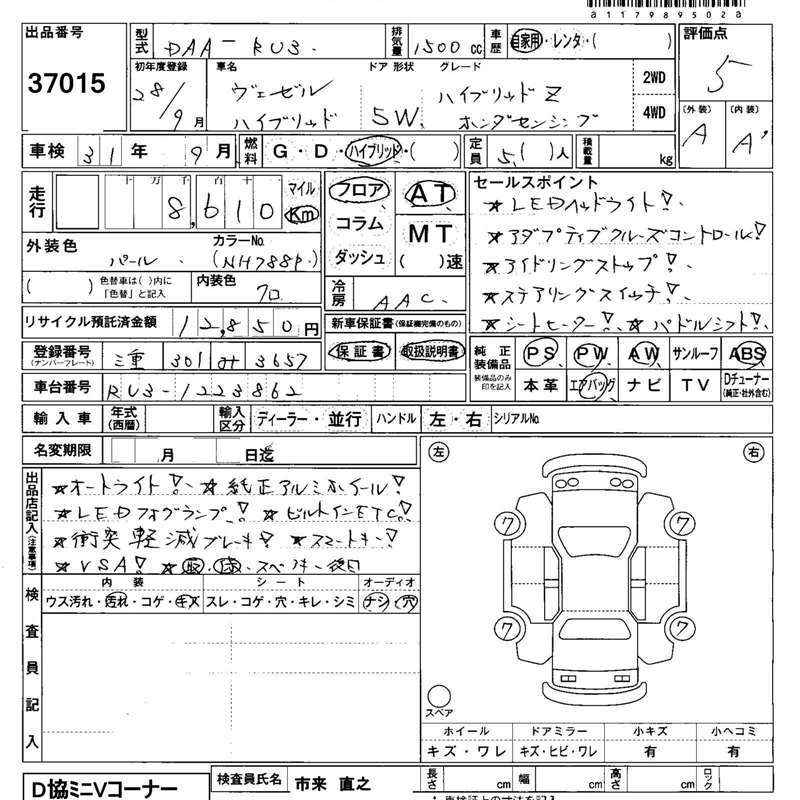 a11798950​2a
出品番号 37015
型式 DAA-RU3. 排気量 1500 cc 車歴 自家用・レンタ・( )
評価点 5
初年度登録 28/9月 車名 ヴェゼル ハイブリッド ドア 形状 5W. グレード ハイブリッドZ ホンダセンシング 2WD 4WD
(外装) A (内装) A'
車検 31年 9月 燃料 G・D・ハイブリッド・( ) 定員 5( )人 積載量 kg
走行 十万千百十 8,610 マイル Km
フロア コラム ダッシュ AT MT ( )速
外装色 パール カラーNo. (NH788P)
( ) 色替車は( )内に「色替」と記入 内装色 クロ
冷房 AAC.
セールスポイント
★LEDヘッドライト!
★アダプティブクルーズコントロール!
★アイドリングストップ!
★ステアリングスイッチ!
★シートヒーター! ★パドルシフト!
リサイクル預託済金額 12,850円
新車保証書(保証継完備のもの)
保証書 取扱説明書
登録番号(ナンバープレート) 三重 301 3657
純正装備品 PS PW AW サンルーフ ABS
装備品のみ印を記入 本革 エアバッグ ナビ TV Dチューナー(純正・社外含む)
車台番号 RU3-1223862
輸入車 年式(西暦) 輸入区分 ディーラー・並行 ハンドル 左・右 シリアルNo.
名変期限 月 日迄
出品店記入(注意事項)
★オートライト! ★純正アルミホイール!
★LEDフォグランプ! ★ビルトインETC!
★衝突軽減ブレーキ! ★スマートキー!
★VSA! ★取・保・スペキー後日
左 右
7 7
7 7
スペア
検査員記入
内装 シート オーディオ
ウス汚れ・汚れ・コゲ・キズ スレ・コゲ・穴・キレ・シミ ナシ・穴
ホイール ドアミラー 小キズ 小ヘコミ
キズ・ワレ キズ・ヒビ・ワレ 有 有
D協ミニVコーナー 検査員氏名 市来 直之 長さ cm 幅 cm 高さ cm ロック